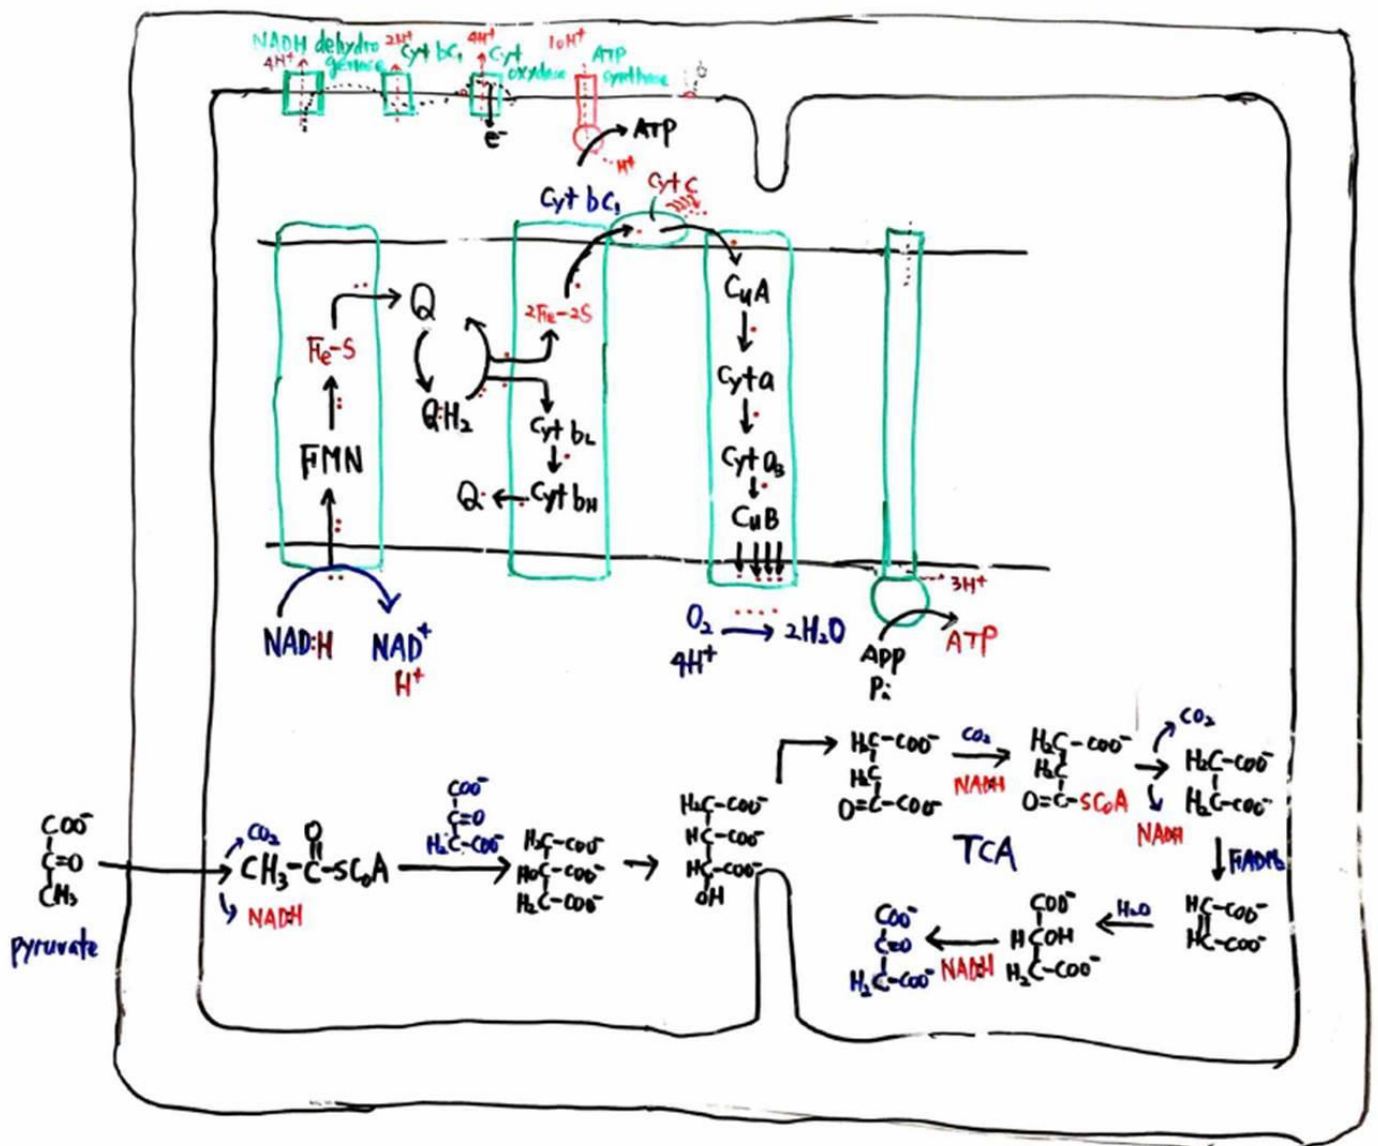 NADH dehydro
genase
4H⁺
2H⁺
Cyt bc₁
4H⁺
Cyt
oxydase
10H⁺
ATP
synthase
e⁻
ATP
H⁺
Cyt bc₁
Cyt C
Fe-S
FMN
NAD:H
NAD⁺
H⁺
Q
Q:H₂
2Fe-2S
Cyt bL
Cyt bH
Q
CuA
Cyt a
Cyt a₃
CuB
O₂
4H⁺
2H₂O
3H⁺
APP
Pi
ATP
COO⁻
C=O
CH₃
pyruvate
CO₂
O
CH₃-C-SCoA
NADH
COO⁻
C=O
H₂C-COO⁻
H₂C-COO⁻
HOC-COO⁻
H₂C-COO⁻
H₂C-COO⁻
HC-COO⁻
HC-COO⁻
OH
H₂C-COO⁻
H₂C
O=C-COO⁻
CO₂
NADH
H₂C-COO⁻
H₂C
O=C-SCoA
CO₂
NADH
H₂C-COO⁻
H₂C-COO⁻
TCA
FADH₂
HC-COO⁻
HC-COO⁻
H₂O
COO⁻
HCOH
H₂C-COO⁻
NADH
COO⁻
C=O
H₂C-COO⁻